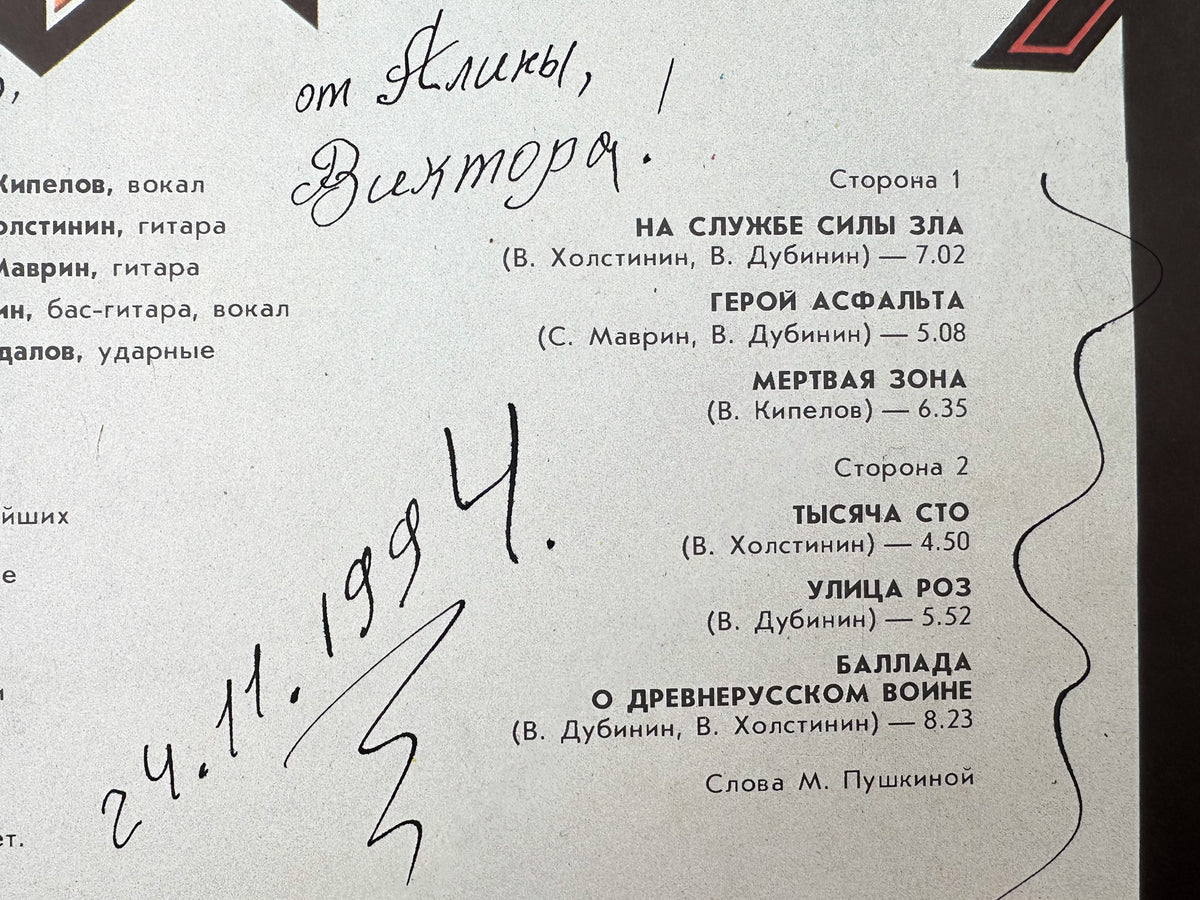 от Алины,
Виктора.
Кипелов, вокал
олстинин, гитара
Маврин, гитара
ин, бас-гитара, вокал
далов, ударные
йших
е
и
ет.
24.11.1994.
Сторона 1
НА СЛУЖБЕ СИЛЫ ЗЛА
(В. Холстинин, В. Дубинин) — 7.02
ГЕРОЙ АСФАЛЬТА
(С. Маврин, В. Дубинин) — 5.08
МЕРТВАЯ ЗОНА
(В. Кипелов) — 6.35
Сторона 2
ТЫСЯЧА СТО
(В. Холстинин) — 4.50
УЛИЦА РОЗ
(В. Дубинин) — 5.52
БАЛЛАДА
О ДРЕВНЕРУССКОМ ВОИНЕ
(В. Дубинин, В. Холстинин) — 8.23
Слова М. Пушкиной